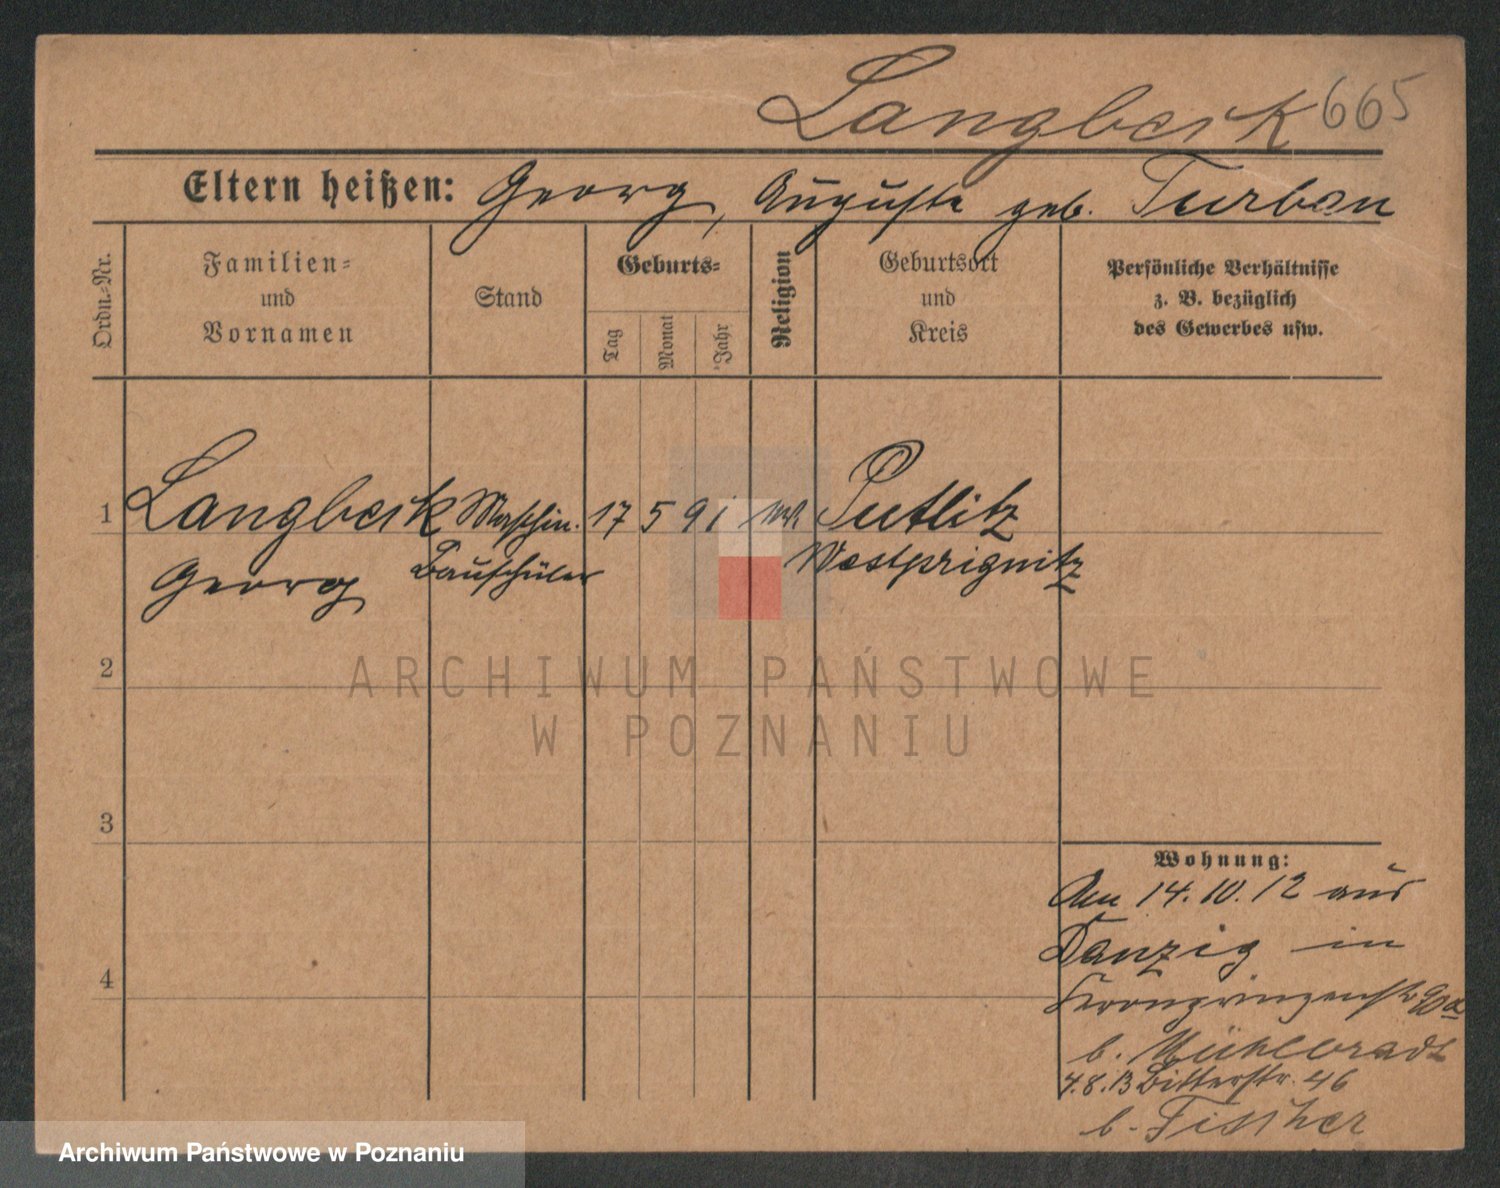 Langbeik 665
Eltern heißen: Georg, Auguste geb. Turban
Ordn.-Nr.
Familien-
und
Vornamen
Stand
Geburts-
Tag
Monat
Jahr
Religion
Geburtsort
und
Kreis
Persönliche Verhältnisse
z. B. bezüglich
des Gewerbes usw.
1 Langbeik Maschin. 17 5 91 Putlitz
Georg Bauschüler Westprignitz
ARCHIWUM PAŃSTWOWE
2
W POZNANIU
3
Wohnung:
Am 14.10.12 aus
Danzig in
4
Kronprinzenstr
b. Mühlbradt
4.8.13 Bitterstr. 46
b. Fischer
Archiwum Państwowe w Poznaniu